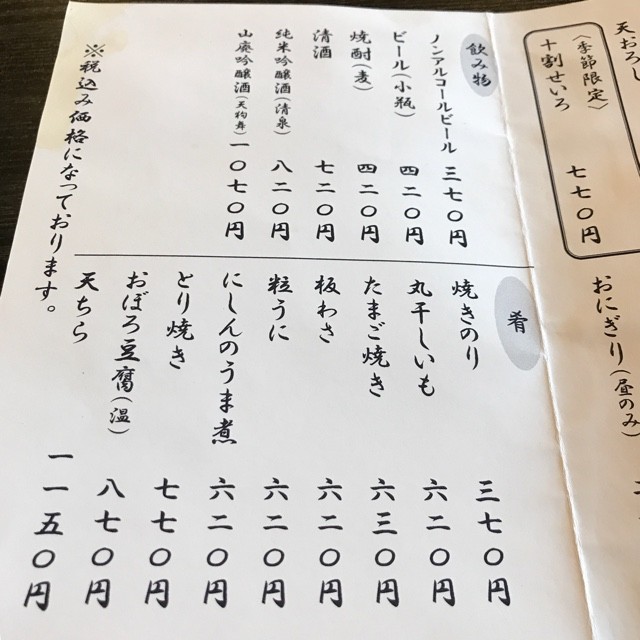 天おろし
〈季節限定〉
十割せいろ 七七〇円
おにぎり(昼のみ)
飲み物
ノンアルコールビール 三七〇円
ビール(小瓶) 四二〇円
焼酎(麦) 四二〇円
清酒 七二〇円
純米吟醸酒(清泉) 八二〇円
山廃吟醸酒(天狗舞) 一〇七〇円
肴
焼きのり 三七〇円
丸干しいも 六二〇円
たまご焼き 六三〇円
板わさ 六二〇円
粒うに 六二〇円
にしんのうま煮 六二〇円
とり焼き 七七〇円
おぼろ豆腐(温) 八七〇円
天ちら 一一五〇円
※税込み価格になっております。